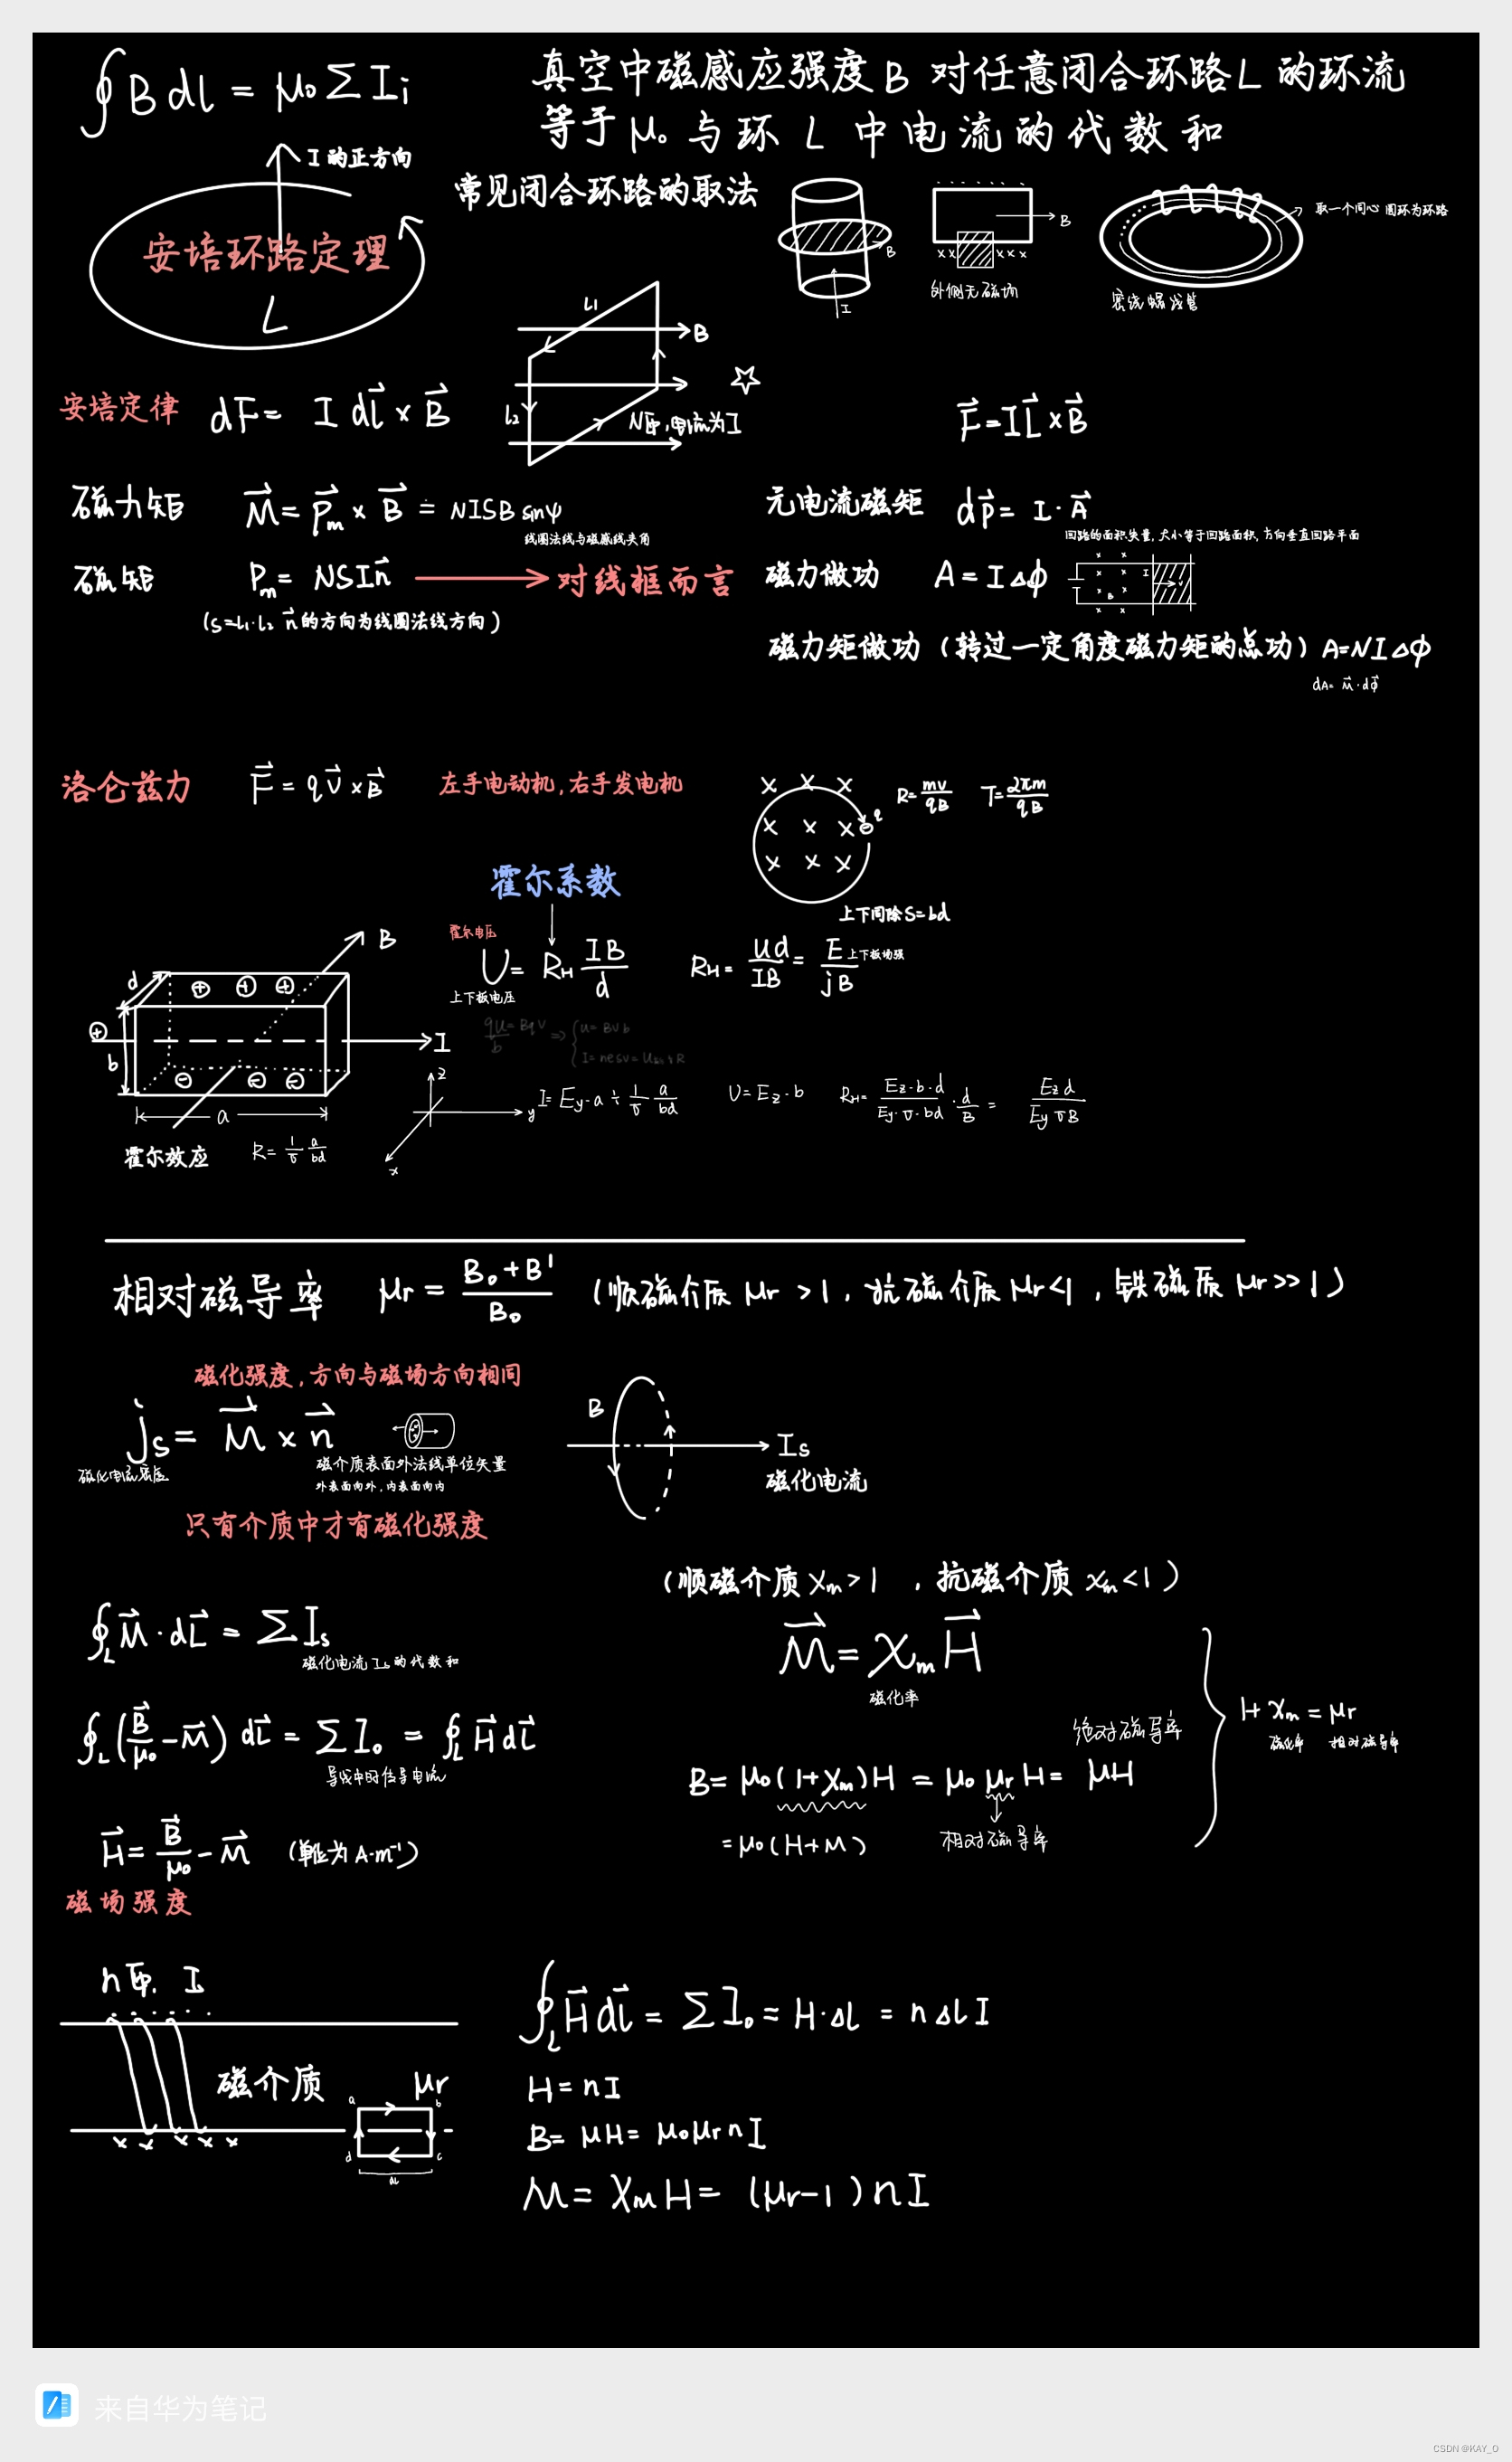 ∮Bdl = μ₀ΣIi
真空中磁感应强度B 对任意闭合环路L的环流
等于μ₀与环L中电流的代数和
I的正方向
安培环路定理
L
常见闭合环路的取法
B
I
B
x x x x x
外侧无磁场
取一个同心圆环为环路
密绕螺线管
L1
B
L2
N匝,电流为I
☆
安培定律 dF = I dl⃗ × B⃗
F⃗ = I L⃗ × B⃗
磁力矩 M⃗ = P⃗m × B⃗ = NISB sinψ
线圈法线与磁感线夹角
元电流磁矩 dp⃗ = I · A⃗
回路的面积矢量,大小等于回路面积,方向垂直回路平面
磁矩 Pm = NSIn⃗ → 对线框而言
(S=L1·L2 n⃗的方向为线圈法线方向)
磁力做功 A = IΔϕ
I v
B
磁力矩做功(转过一定角度磁力矩的总功) A=NIΔϕ
dA= M⃗·dϕ⃗
洛仑兹力 F⃗ = qv⃗ × B⃗
左手电动机,右手发电机
x x x
x x x
x x x
q
R=mv/qB T=2πm/qB
霍尔系数
上下同除S=bd
霍尔电压
U = RH IB/d
上下板电压
RH = Ud/IB = E/jB
上下板场强
B
d
b
I
a
霍尔效应
R= 1/σ a/bd
qU/b = BqV ⇒ { U= BVb
z
y
x
I= Ey·a ÷ 1/σ a/bd
U= Ez·b
RH= Ez·b·d/Ey·σ·bd · d/B = Ez d/Ey σB
相对磁导率 μr = B₀+B'/B₀ (顺磁介质 μr >1, 抗磁介质 μr<1, 铁磁质 μr>>1)
磁化强度,方向与磁场方向相同
js = M⃗ × n⃗
磁化电流密度
磁介质表面外法线单位矢量
外表面向外,内表面向内
只有介质中才有磁化强度
B
Is
磁化电流
(顺磁介质 χm>1 ,抗磁介质 χm<1)
∮L M⃗·dL⃗ = ΣIs
磁化电流Is的代数和
M⃗ = χm H⃗
磁化率
∮L (B⃗/μ₀ - M⃗) dL⃗ = ΣI₀ = ∮L H⃗dL⃗
导线中的传导电流
绝对磁导率
B= μ₀(1+χm)H = μ₀ μr H= μH
=μ₀(H+M)
相对磁导率
1+χm = μr
磁化率 相对磁导率
H⃗ = B⃗/μ₀ - M⃗ (单位为A·m⁻¹)
磁场强度
n匝, I
磁介质 μr
a b
d c
ΔL
∮L H⃗dl⃗ = ΣI₀ = H·ΔL = nΔLI
H = nI
B= μH = μ₀μr nI
M = χmH = (μr-1)nI
来自华为笔记
CSDN @KAY_O